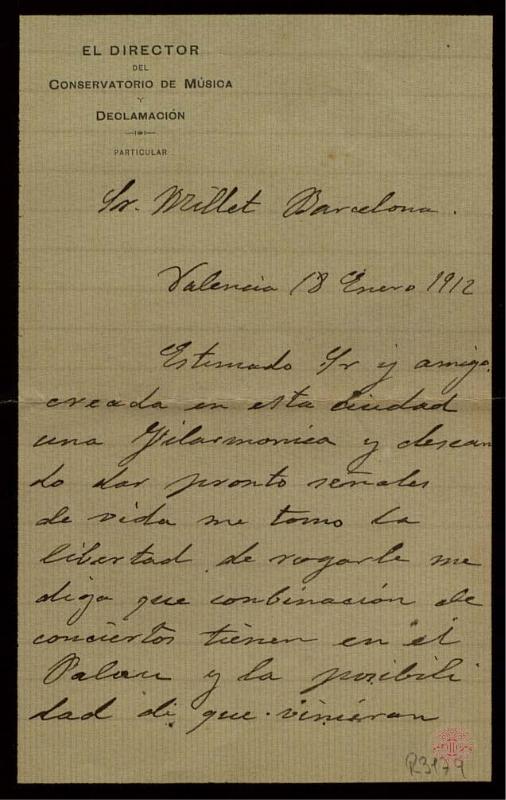 EL DIRECTOR
DEL
CONSERVATORIO DE MÚSICA
Y
DECLAMACIÓN
PARTICULAR
Sr. Millet Barcelona.
Valencia 18 Enero 1912
Estimado Sr y amigo.
creada en esta ciudad
una Filarmonica y desean
do dar pronto señales
de vida me tomo la
libertad de rogarle me
diga que conbinación de
conciertos tienen en el
Palau y la posibili
dad di que vinieran
R3179